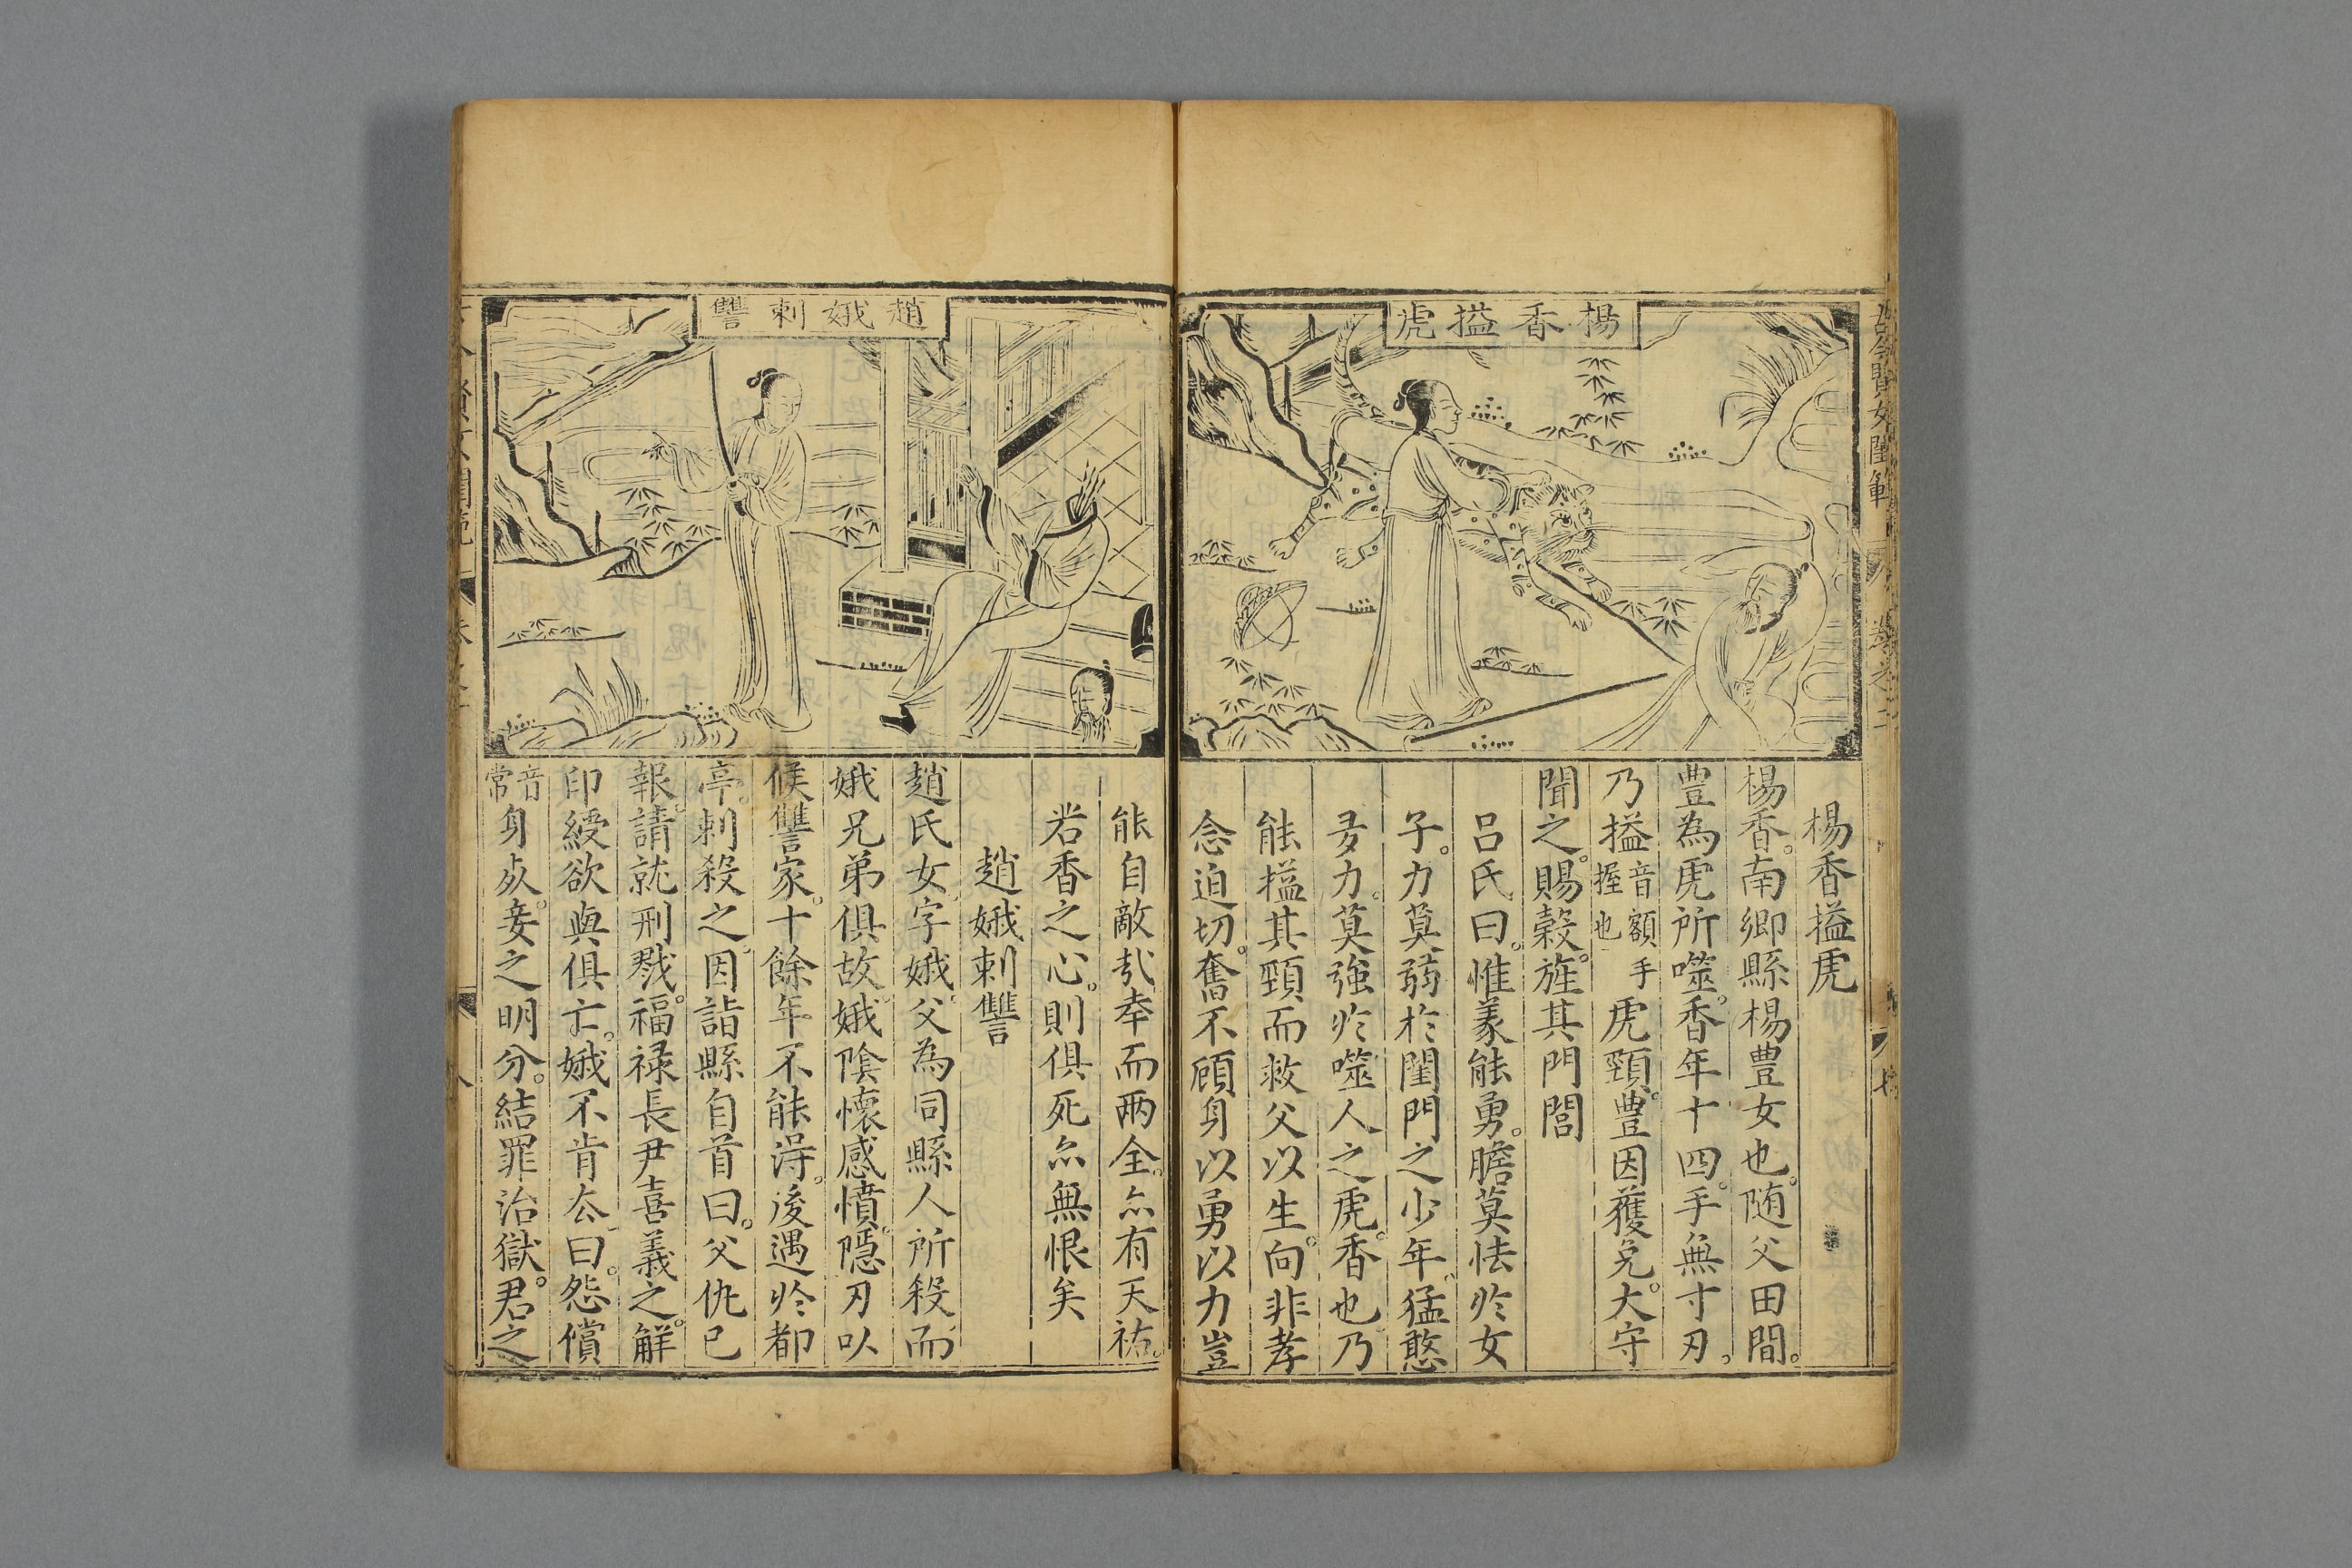 古今賢女閨範
卷之二
七
楊香搤虎
楊香搤虎
楊香。南鄉縣楊豊女也。随父田間。
豊為虎所噬。香年十四。手無寸刃。
乃搤音額手握也虎頸。豊因獲免。太守
聞之。賜穀。旌其門閭
呂氏曰。惟義能勇。膽莫怯於女
子。力莫弱於閨門之少年。猛憨
多力。莫強於噬人之虎。香也乃
能搤其頸而救父以生。向非孝
念迫切。奮不顧身以勇以力豈
趙娥刺讐
能自敵哉。幸而两全。亦有天祐。
若香之心。則俱死亦無恨矣
趙娥刺讐
趙氏女字娥。父為同縣人所殺而
娥兄弟俱故。娥陰懷感憤。隱刃以
候讐家。十餘年不能得。後遇於都
亭。刺殺之。因詣縣自首曰。父仇已
報。請就刑戮。福祿長尹喜義之。解
印綬欲與俱亡。娥不肯去。曰。怨償
音常身死。妾之明分。結罪治獄。君之
八